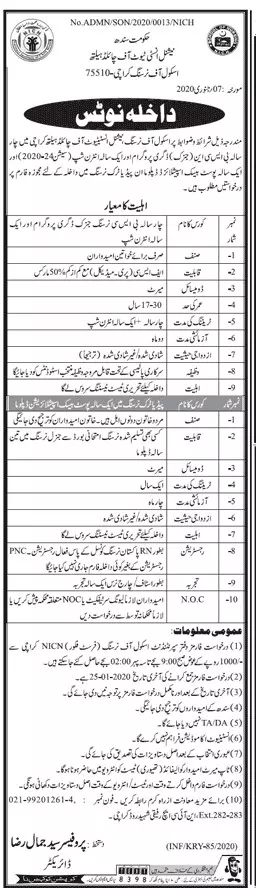 No.ADMN/SON/2020/0013/NICH
حکومت سندھ
نیشنل انسٹی ٹیوٹ آف چائلڈ ہیلتھ
اسکول آف نرسنگ کراچی-75510
مورخہ :07/جنوری 2020
داخلہ نوٹس
مندرجہ ذیل شرائط و ضوابط پر اسکول آف نرسنگ نیشنل انسٹیٹیوٹ آف چائلڈ ہیلتھ کراچی میں چار
سالہ بی ایس سی این (جنرک) ڈگری پروگرام اور ایک سالہ انٹرن شپ (سیشن 24-2020) اور
ایک سالہ پوسٹ بیسک اسپیشلائزڈ ڈپلومہ ان پیڈیاٹرک نرسنگ میں داخلہ کے لئے مجوزہ فارم پر
درخواستیں مطلوب ہیں۔
اہلیت کا معیار
نمبر شمار کورس کا نام چار سالہ بی ایس سی نرسنگ جنرک ڈگری پروگرام اور ایک سالہ انٹرن شپ
1- صنف صرف برائے خواتین امیدواران
2- قابلیت ایف ایس سی (پری-میڈیکل) مع کم از کم %50 مارکس
3- ڈومیسائل میرٹ
4- عمر کی حد 17-30 سال
5- ٹریننگ کی مدت چار سالہ + ایک سالہ انٹرن شپ
6- آزمائشی مدت دو ماہ
7- ازدواجی حیثیت شادی شدہ/غیر شادی شدہ (ترجیحا)
8- وظیفہ سرکاری پالیسی کے تحت قابل مروجہ وظیفہ منتخب اسٹوڈنٹس کو دیا جائے گا
9- اہلیت داخلہ کیلئے تحریری ٹیسٹ ٹیسٹنگ سروس لے گا
نمبر شمار کورس کا نام پیڈیاٹرک نرسنگ میں ایک سالہ پوسٹ بیسک اسپیشلائزیشن ڈپلوما
1- صنف مرد و خاتون دونوں اہل ہیں۔ خاتون امیدوار کو ترجیح دی جائیگی
2- قابلیت کسی بھی تسلیم شدہ نرسنگ امتحانی بورڈ سے جنرل نرسنگ میں تین سالہ ڈپلوما
3- ڈومیسائل میرٹ
4- ٹریننگ کی مدت ایک سال
5- آزمائشی مدت چار ماہ
6- ازدواجی حیثیت شادی شدہ/غیر شادی شدہ
7- اہلیت داخلہ کیلئے تحریری ٹیسٹ ٹیسٹنگ سروس لے گا
8- رجسٹریشن بطور RN پاکستان نرسنگ کونسل کے پاس فعال رجسٹریشن۔ PNC
رجسٹریشن کے بغیر کوئی داخلہ فارم جاری نہیں کیا جائیگا
9- تجربہ بطور اسٹاف/چارج نرس ایک سالہ تجربہ
10- N.O.C امیدواران لازماً نیوٹنگ سرٹیفکیٹ یا NOC متعلقہ محکمہ پیش کریں یا
عمومی معلومات:
(1) درخواست فارمز دفتر سپرنٹنڈنٹ اسکول آف نرسنگ (فرسٹ فلور) NICN کراچی سے
-/1000 روپے کے عوض صبح 9:00 بجے تا سہ پہر 02:00 بجے حاصل کئے جا سکتے ہیں۔
(2) درخواست فارمز جمع کرانے کی آخری تاریخ 25-01-2020 ہے۔
(3) آخری تاریخ کے بعد اور نامکمل درخواست فارمز پر توجہ نہیں دی جائے گی۔
(4) سندھ کے امیدواروں کو ترجیح دی جائیگی۔
(5) TA/DA نہیں دیا جائے گا۔
(6) انسٹیٹیوٹ اکاموڈیشن فراہم نہیں کرے گا۔
(7) عبوری انتخاب کے بعد اصل دستاویزات کی تصدیق کی جائے گی۔
(8) ٹاپ میرٹ امیدوار کوالیفائڈ (تحریری) ٹیسٹ کو انٹرویو میں حاضر ہونا ہوگا۔
(9) درخواست فارم داخل کرتے وقت اور ٹیسٹ و انٹرویو کے موقع پر اصل دستاویزات دکھانی ہونگی۔
(10) برائے مزید معاونت از راہ کرم رابطہ کریں۔ فون نمبر: 4-99201261-021،
Ext.282-283، این آئی سی ایچ رفیقی شہید روڈ کراچی۔
دستخط: پروفیسر سید جمال رضا
ڈائریکٹر
(INF/KRY-85/2020)
8398